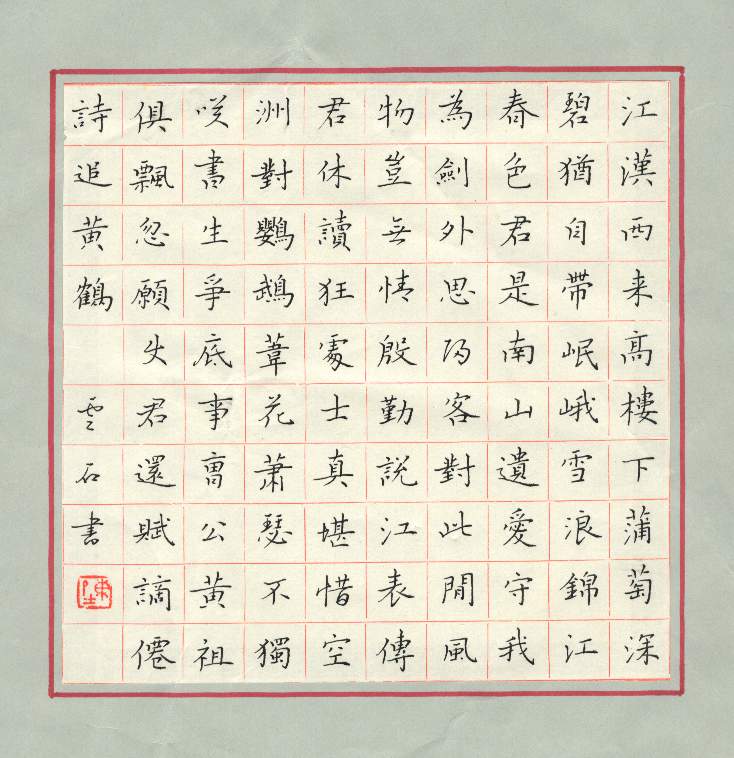 江漢西来高樓下蒲萄深
碧猶自帶岷峨雪浪錦江
春色君是南山遺愛守我
為劍外思歸客對此閒風
物豈無情殷勤說江表傳
君休讀狂處士真堪惜空
洲對鸚鵡葦花蕭瑟不獨
咲書生爭底事曹公黃祖
俱飄忽願史君還賦謫僊
詩追黃鶴
雲石書